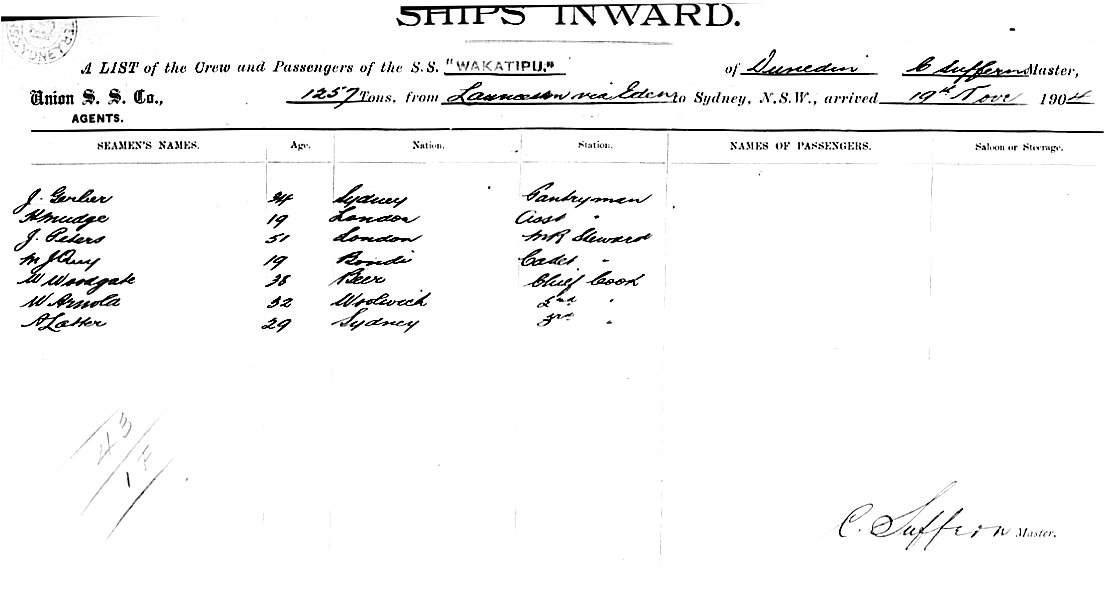 SHIPS INWARD.
A LIST of the Crew and Passengers of the S.S. "WAKATIPU." of Dunedin C Suffern Master,
Union S. S. Co., 1257 Tons, from Launceston via Eden to Sydney, N.S.W., arrived 19th Nov 1904
AGENTS.
SEAMEN'S NAMES. Age. Nation. Station. NAMES OF PASSENGERS. Saloon or Steerage.
J. Gerber 24 Sydney Pantryman
H Mudge 19 London Asst "
J. Peters 51 London MR Steward
M J Quy 19 Bondi Cadet "
W Woodgate 38 Beer Chief Cook
W Arnold 32 Woolwich 2nd "
A Latter 29 Sydney 3rd "
43
1
C. Suffern Master.